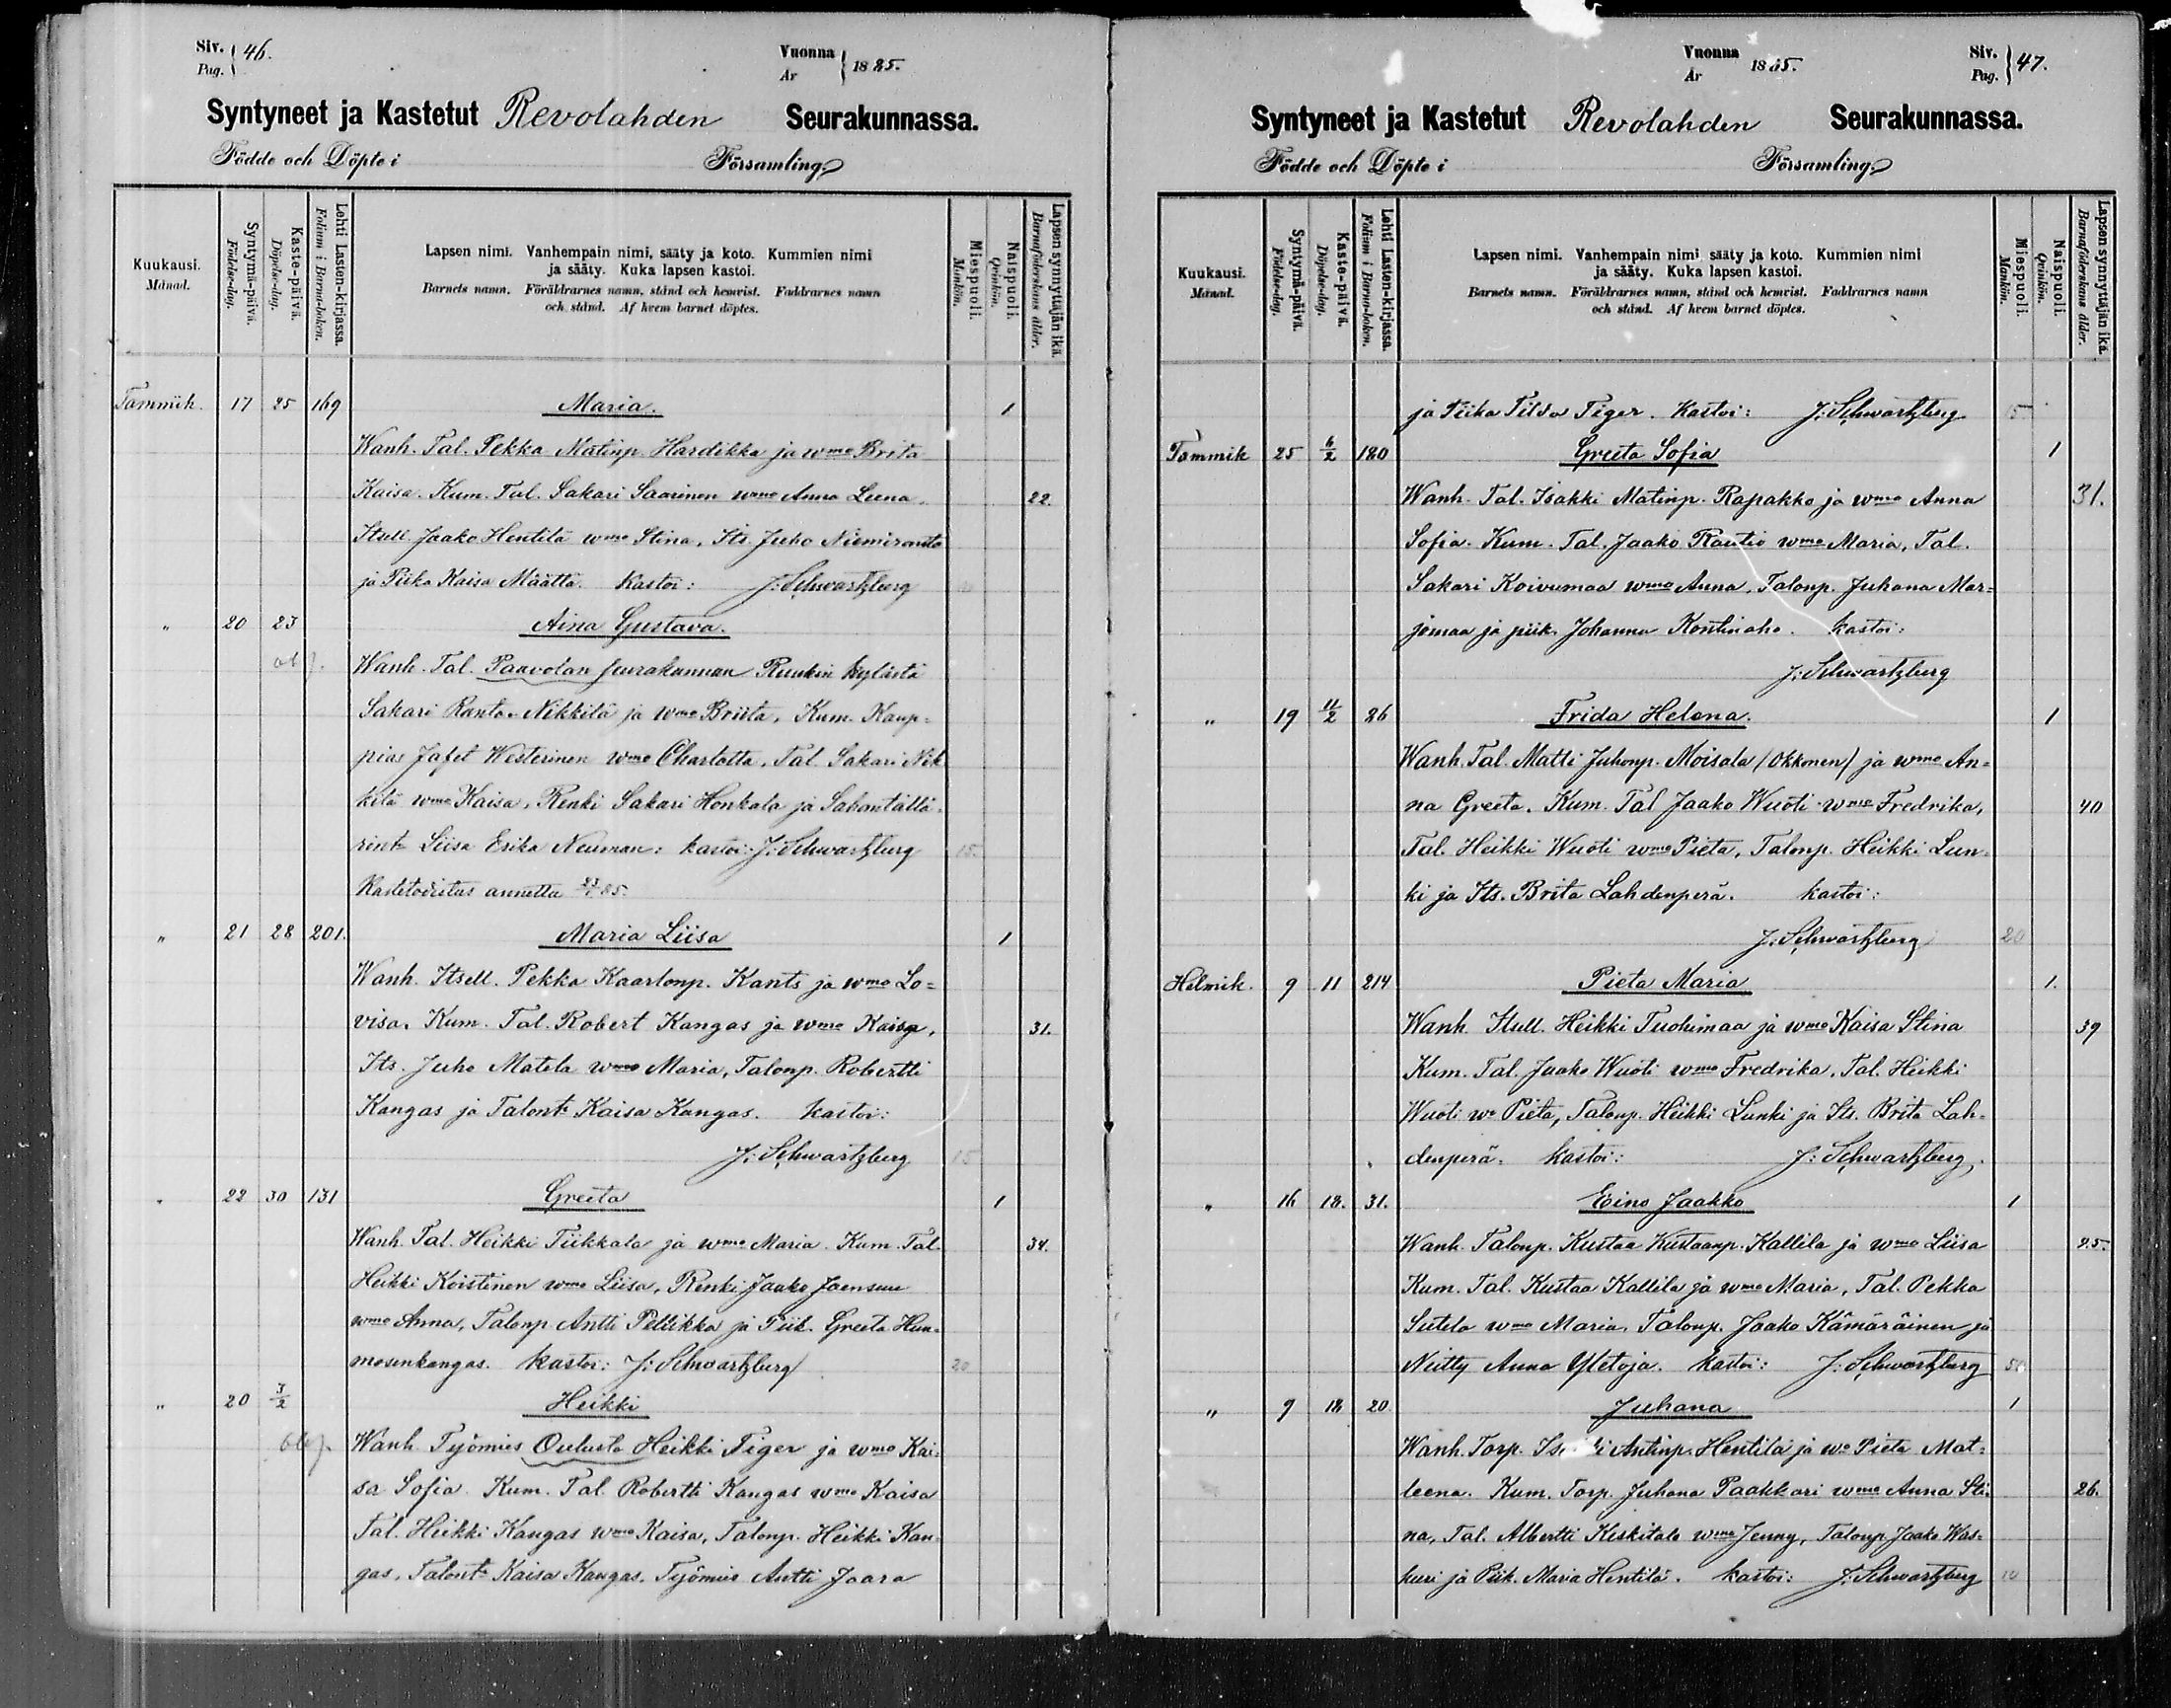 Siv. Pag. 46.
Vuonna År 1885.
Syntyneet ja Kastetut Revolahden Seurakunnassa.
Födde och Döpte i Församling.
Kuukausi. Månad.
Syntymä-päivä. Födelse-dag.
Kaste-päivä. Döpelse-dag.
Lehti Lasten-kirjassa. Folium i Barna-boken.
Lapsen nimi. Vanhempain nimi, sääty ja koto. Kummien nimi
ja sääty. Kuka lapsen kastoi.
Barnets namn. Föräldrarnes namn, stånd och hemvist. Faddrarnes namn
och stånd. Af hvem barnet döptes.
Miespuoli. Mankön.
Naispuoli. Qvinkön.
Lapsen synnyttäjän ikä. Barnaföderskans ålder.
Tammik. 17 25 169 Maria. 1
Wanh. Tal. Pekka Matinp. Hardikka ja wmo Brita
Kaisa. Kum. Tal. Sakari Saarinen wmo Anna Leena, 22.
Itsell. Jaako Hentilä wmo Stina, Its. Juho Niemiranta
ja Piika Kaisa Määttä. Kastoi: J. Schwartzberg
" 20 23 Aina Gustava.
Wanh. Tal. Paavolan seurakunnan Ruukin kylästä
Sakari Ranta-Nikkilä ja wmo Briita, Kum. Kaup-
pias Jafet Westerinen wmo Charlotta, Tal. Sakari Nik
kilä wmo Kaisa, Renki Sakari Honkala ja Sahantällä-
rint Liisa Erika Neuman: kastoi: J. Schwartzberg 15.
Kastetodistus annettu 23/1 85.
" 21 28 201. Maria Liisa 1
Wanh. Itsell. Pekka Kaarlonp. Kants ja wmo Lo=
visa. Kum. Tal. Robert Kangas ja wmo Kaisa, 31.
Its. Juho Matela wmo Maria, Talonp. Robertti
Kangas ja Talont. Kaisa Kangas. kastoi:
J. Schwartzberg 15
" 22 30 131 Greeta 1
Wanh. Tal. Heikki Tiikkala ja wmo Maria. Kum. Tal. 34.
Heikki Koistinen wmo Liisa, Renki Jaako Joensuu
wmo Anna, Talonp Antti Pellikka ja Piik. Greeta Hum-
mosenkangas. kastoi: J. Schwartzberg 20
" 20 3/2 Heikki
Wanh. Työmies Oulusta Heikki Tiger ja wmo Kai-
sa Sofia. Kum. Tal. Robertti Kangas wmo Kaisa
Tal. Heikki Kangas wmo Kaisa, Talonp. Heikki Kan-
gas, Talont. Kaisa Kangas, Työmies Antti Jaara
Vuonna År 1885.
Siv. Pag. 47.
Syntyneet ja Kastetut Revolahden Seurakunnassa.
Födde och Döpte i Församling.
Kuukausi. Månad.
Syntymä-päivä. Födelse-dag.
Kaste-päivä. Döpelse-dag.
Lehti Lasten-kirjassa. Folium i Barna-boken.
Lapsen nimi. Vanhempain nimi, sääty ja koto. Kummien nimi
ja sääty. Kuka lapsen kastoi.
Barnets namn. Föräldrarnes namn, stånd och hemvist. Faddrarnes namn
och stånd. Af hvem barnet döptes.
Miespuoli. Mankön.
Naispuoli. Qvinkön.
Lapsen synnyttäjän ikä. Barnaföderskans ålder.
ja Piika Tilda Tiger. Kastoi: J. Schwartzberg 15
Tammik 25 6/2 180 Greeta Sofia 1
Wanh. Tal. Isakki Matinp. Rapakko ja wmo Anna 31.
Sofia. Kum. Tal. Jaako Rautio wmo Maria, Tal.
Sakari Koivumaa wmo Anna, Talonp. Juhana Mar=
jomaa ja piik. Johanna Kontinaho. kastoi:
J. Schwartzberg
" 19 11/2 86 Frida Helena. 1
Wanh. Tal. Matti Juhonp. Moisala (Okkonen) ja wmo An=
na Greeta. Kum. Tal Jaako Wuoti wmo Fredrika, 40
Tal. Heikki Wuoti wmo Pieta, Talonp. Heikki Lun-
ki ja Its. Brita Lahdenperä. kastoi:
J. Schwartzberg 20
Helmik. 9 11 214 Pieta Maria 1.
Wanh. Itsell. Heikki Tuohimaa ja wmo Kaisa Stina 39
Kum. Tal. Jaako Wuoti wmo Fredrika, Tal. Heikki
Wuoti wo Pieta, Talonp. Heikki Lunki ja Its. Brita Lah-
denperä. kastoi: J. Schwartzberg.
" 16 18. 31. Eino Jaakko 1
Wanh. Talonp. Kustaa Kustaanp. Kallila ja wmo Liisa 25.
Kum. Tal. Kustaa Kallila ja wmo Maria, Tal. Pekka
Sutela wmo Maria, Talonp. Jaako Kämäräinen ja
Neitty Anna Yletoja. kastoi: J. Schwartzberg
" 9 18 20 Juhana 1
Wanh. Torp. Antinp. Hentilä ja wo Pieta Mat-
leena. Kum. Torp. Juhana Paakkari wmo Anna Sti- 26.
na, Tal. Albertti Keskitalo wmo Jenny, Talonp. Jaako Was-
kuri ja Piik. Maria Hentilä. kastoi: J. Schwartzberg 10